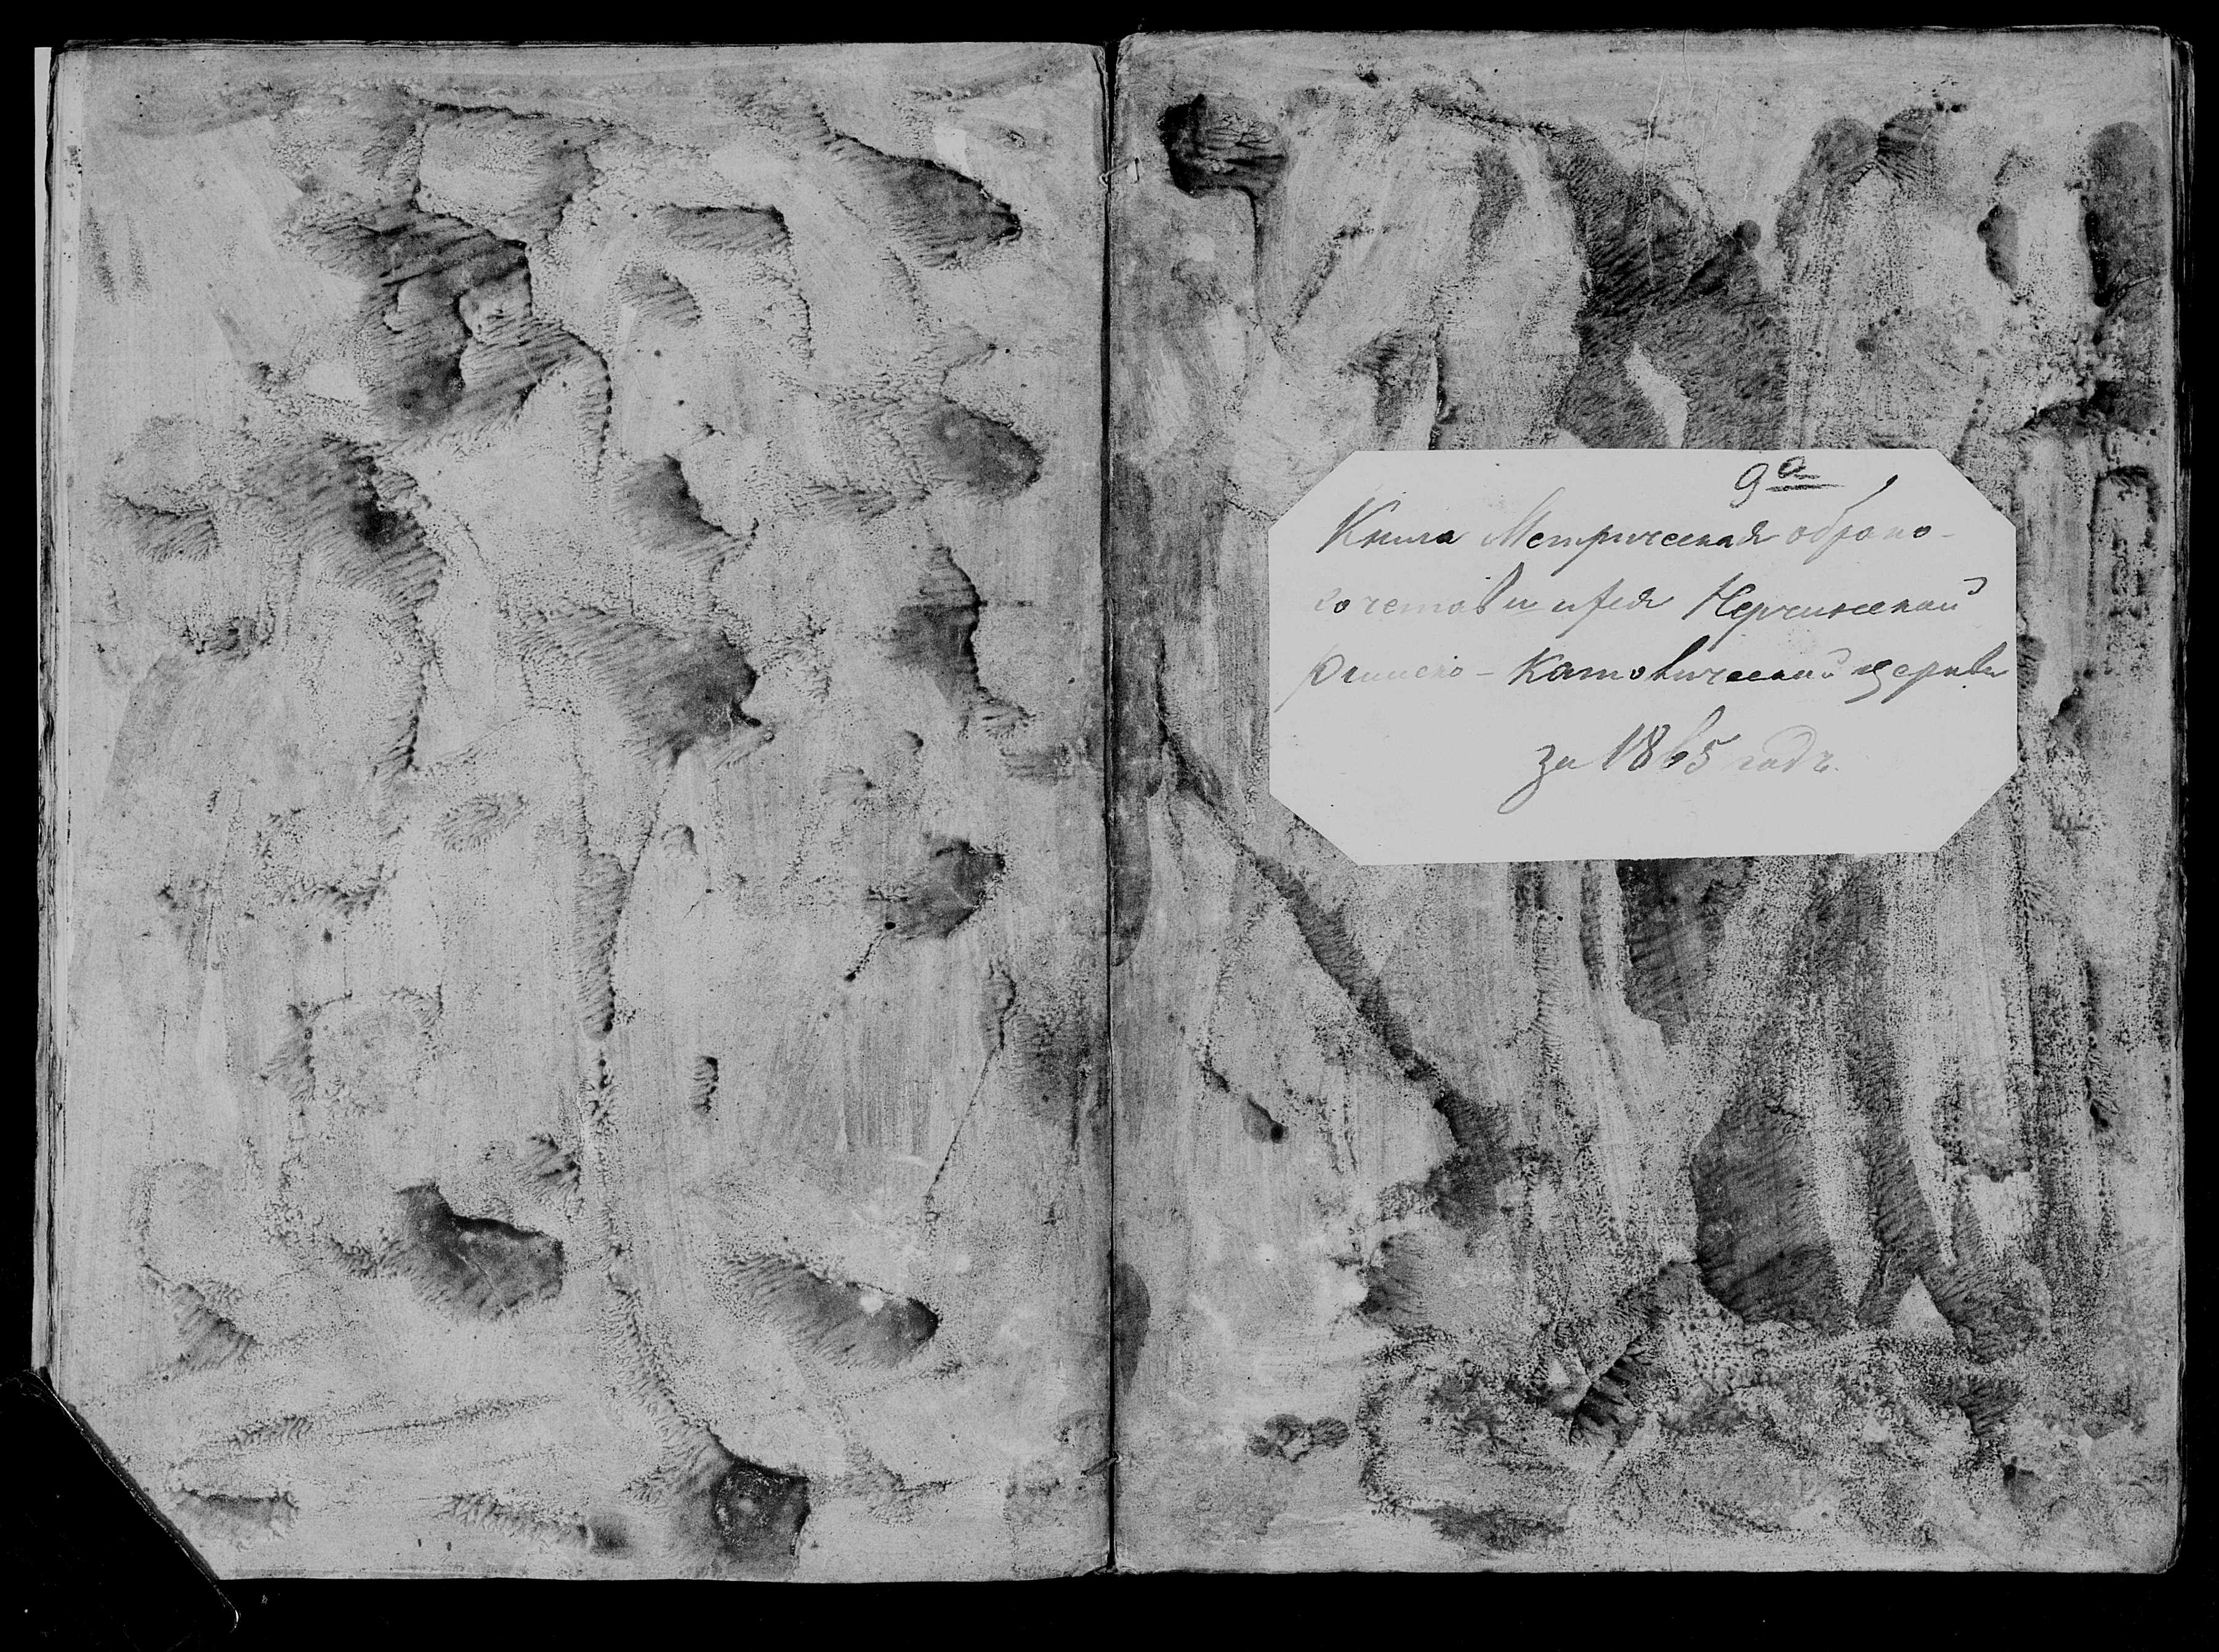 9а
Книга Метрическая обрако-
сочетавшихся Нерчинской
Римско-Католической церкви
за 1865 годъ.